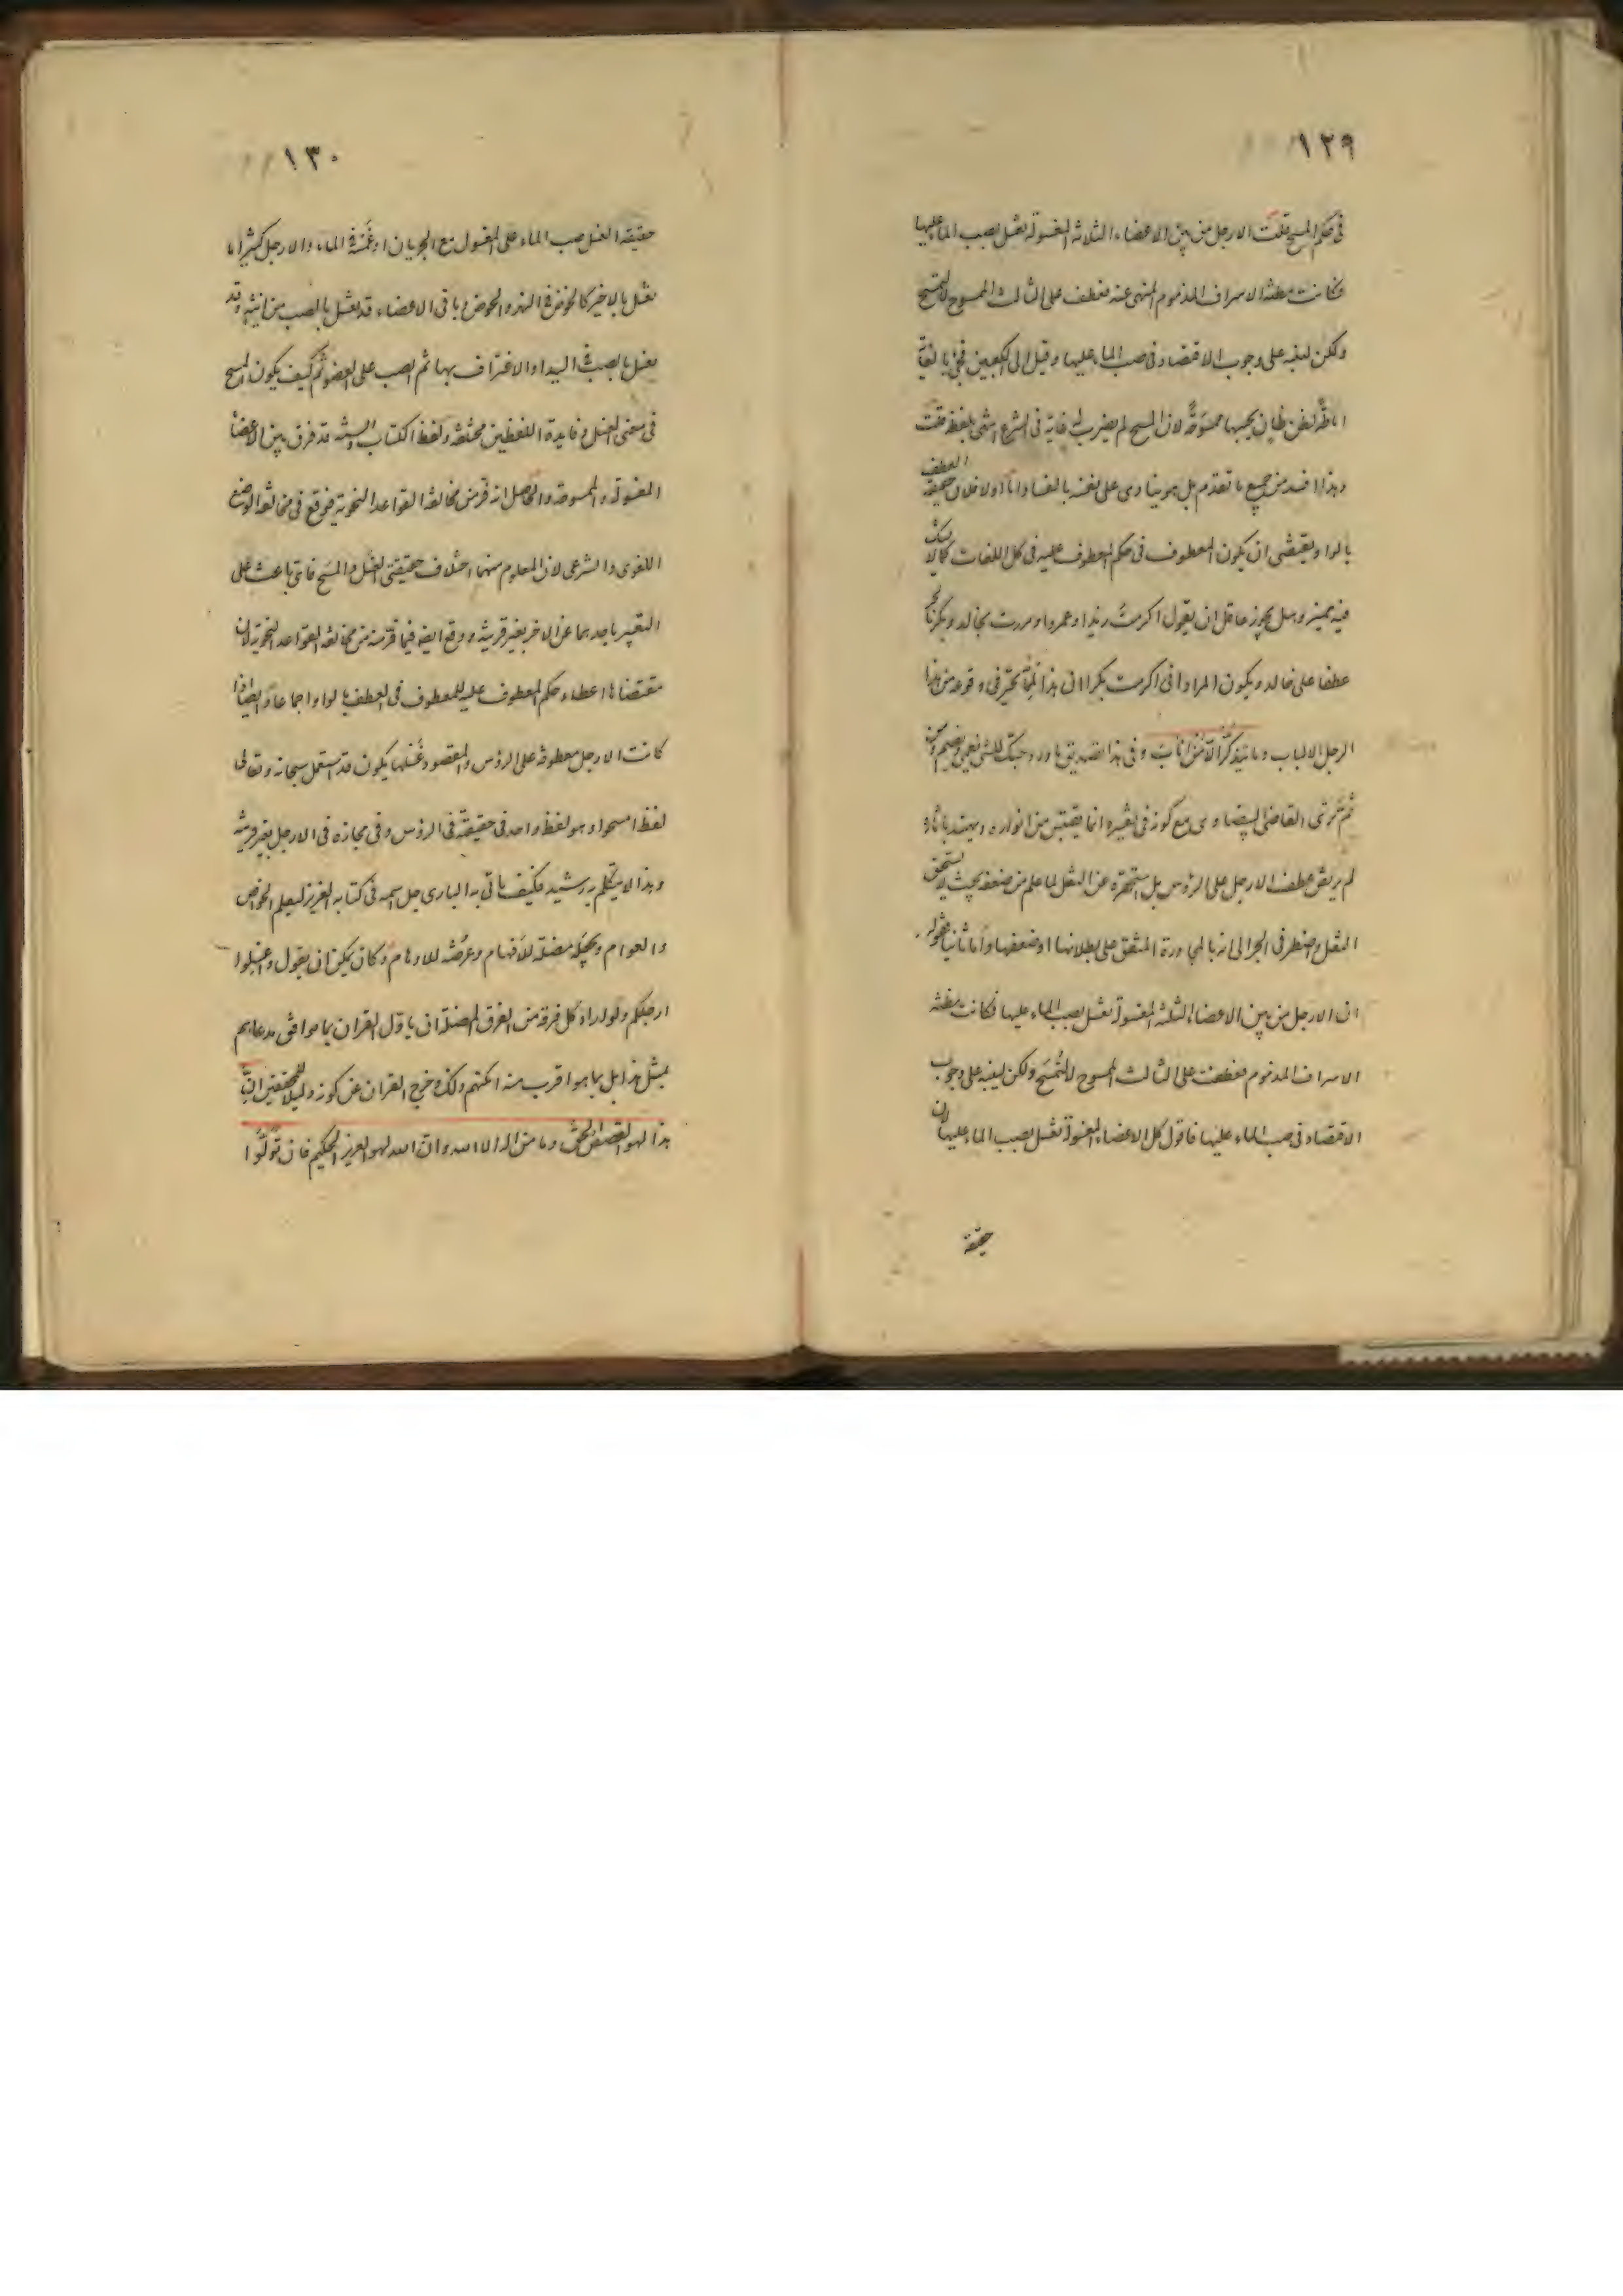 ١٢٩
فى حكم المسح قلت الارجل من بين الاعضاء الثلاثة المغسولة تغسل بصب الماء عليها
فكانت مظنة الاسراف المذموم المنهى عنه فعطف على الثالث الممسوح لا لتمسح
ولكن لينبه على وجوب الاقتصاد فى صب الماء عليها وقيل الى الكعبين فجئ بالغاية
اماطة لظن ظان يحسبها ممسوحة لان المسح لم يضرب له غاية فى الشرع انتهى بلفظه قلت
وهذا افسد من جميع ما تقدم بل هو ينادى على نفسه بالفساد اما اولا فلان حقيقة العطف
بالواو يقتضى ان يكون المعطوف فى حكم المعطوف عليه فى كل اللغات كما لا يشك
فيه مميز وهل يجوز عاقل ان يقول اكرمت زيدا وعمروا ومررت بخالد وبكر
عطفا على خالد ويكون المراد انى اكرمت بكرا ان هذا مما تحير فى وقوعه من هذا
الرجل الالباب وما يتذكر الا من اناب وفى هذا تصديق ما ورد حبك للشئ يعمى ويصم ومن
ثم ترى القاضى البيضاوى مع كونه فى تفسيره انما يقتبس من انواره ويهتد باثاره
لم يرتض عطف الارجل على الرؤس بل استحقره عن النقل لما علم من ضعفه بحيث لا يستحق
النقل واضطر فى الجر الى انه بالمجاورة المتفق على بطلانها او ضعفها واما ثانيا فقوله
ان الارجل من بين الاعضاء الثلثة المغسولة تغسل بصب الماء عليها فكانت مظنة
الاسراف المذموم فعطفت على الثالث الممسوح لا لتمسح ولكن لينبه على وجوب
الاقتصاد فى صب الماء عليها فاقول كل الاعضاء المغسولة تغسل بصب الماء عليها لان
حقيقة
١٣٠
حقيقة الغسل صب الماء على المغسول مع الجريان او غمسه فى الماء والارجل كثيرا ما
تغسل بالاخير كالخوض فى النهر والحوض وباقى الاعضاء قد تغسل بالصب من انية وقد
تغسل بالصب فى اليد او الاغتراف بها ثم الصب على العضو ثم كيف يكون المسح
فى معنى الغسل وفايدة اللفظين مختلفة ولفظ الكتاب والسنة قد فرق بين الاعضاء
المغسولة والممسوحة والحاصل انه فر من مخالفة القواعد النحوية فوقع فى مخالفة الوضع
اللغوى والشرعى لان المعلوم منهما اختلاف حقيقتى الغسل والمسح فاى باعث على
التعبير باحدهما عن الاخر بغير قرينة ووقع ايضا فيما فر منه من مخالفة القواعد النحوية لان
مقتضاها اعطاء حكم المعطوف عليه للمعطوف فى العطف بالواو اجماعا وايضا اذا
كانت الارجل معطوفة على الرؤس والمقصود غسلها يكون قد استعمل سبحانه وتعالى
لفظ امسحوا وهو لفظ واحد فى حقيقته فى الرؤس وفى مجازه فى الارجل بغير قرينة
وهذا لا يتكلم به رشيد فكيف ياتى به البارى جل اسمه فى كتابه العزيز ليعلم الخواص
والعوام ويجعله مضلة للافهام وعرضة للاوهام وكان يمكن ان يقول واغسلوا
ارجلكم ولو اراد كل فرقة من الفرق المضلة ان ياول القران بما يوافق مدعاهم
بمثل هذا بل بما هو اقرب منه امكنهم ذلك وخرج القران عن كونه دليلا للمحقين ان
هذا لهو القصص الحق وما من اله الا الله وان الله لهو العزيز الحكيم فان تولوا